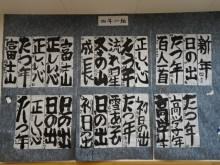 四年一組
新年
日の出
たつ年
百人一首
正しい心
流れ星
冬の山
成長
富士山
正しい心
たつ年
富士山
高学年
たつ年
日の出
初日の出
日の出
正しい心
日の出
たつ年